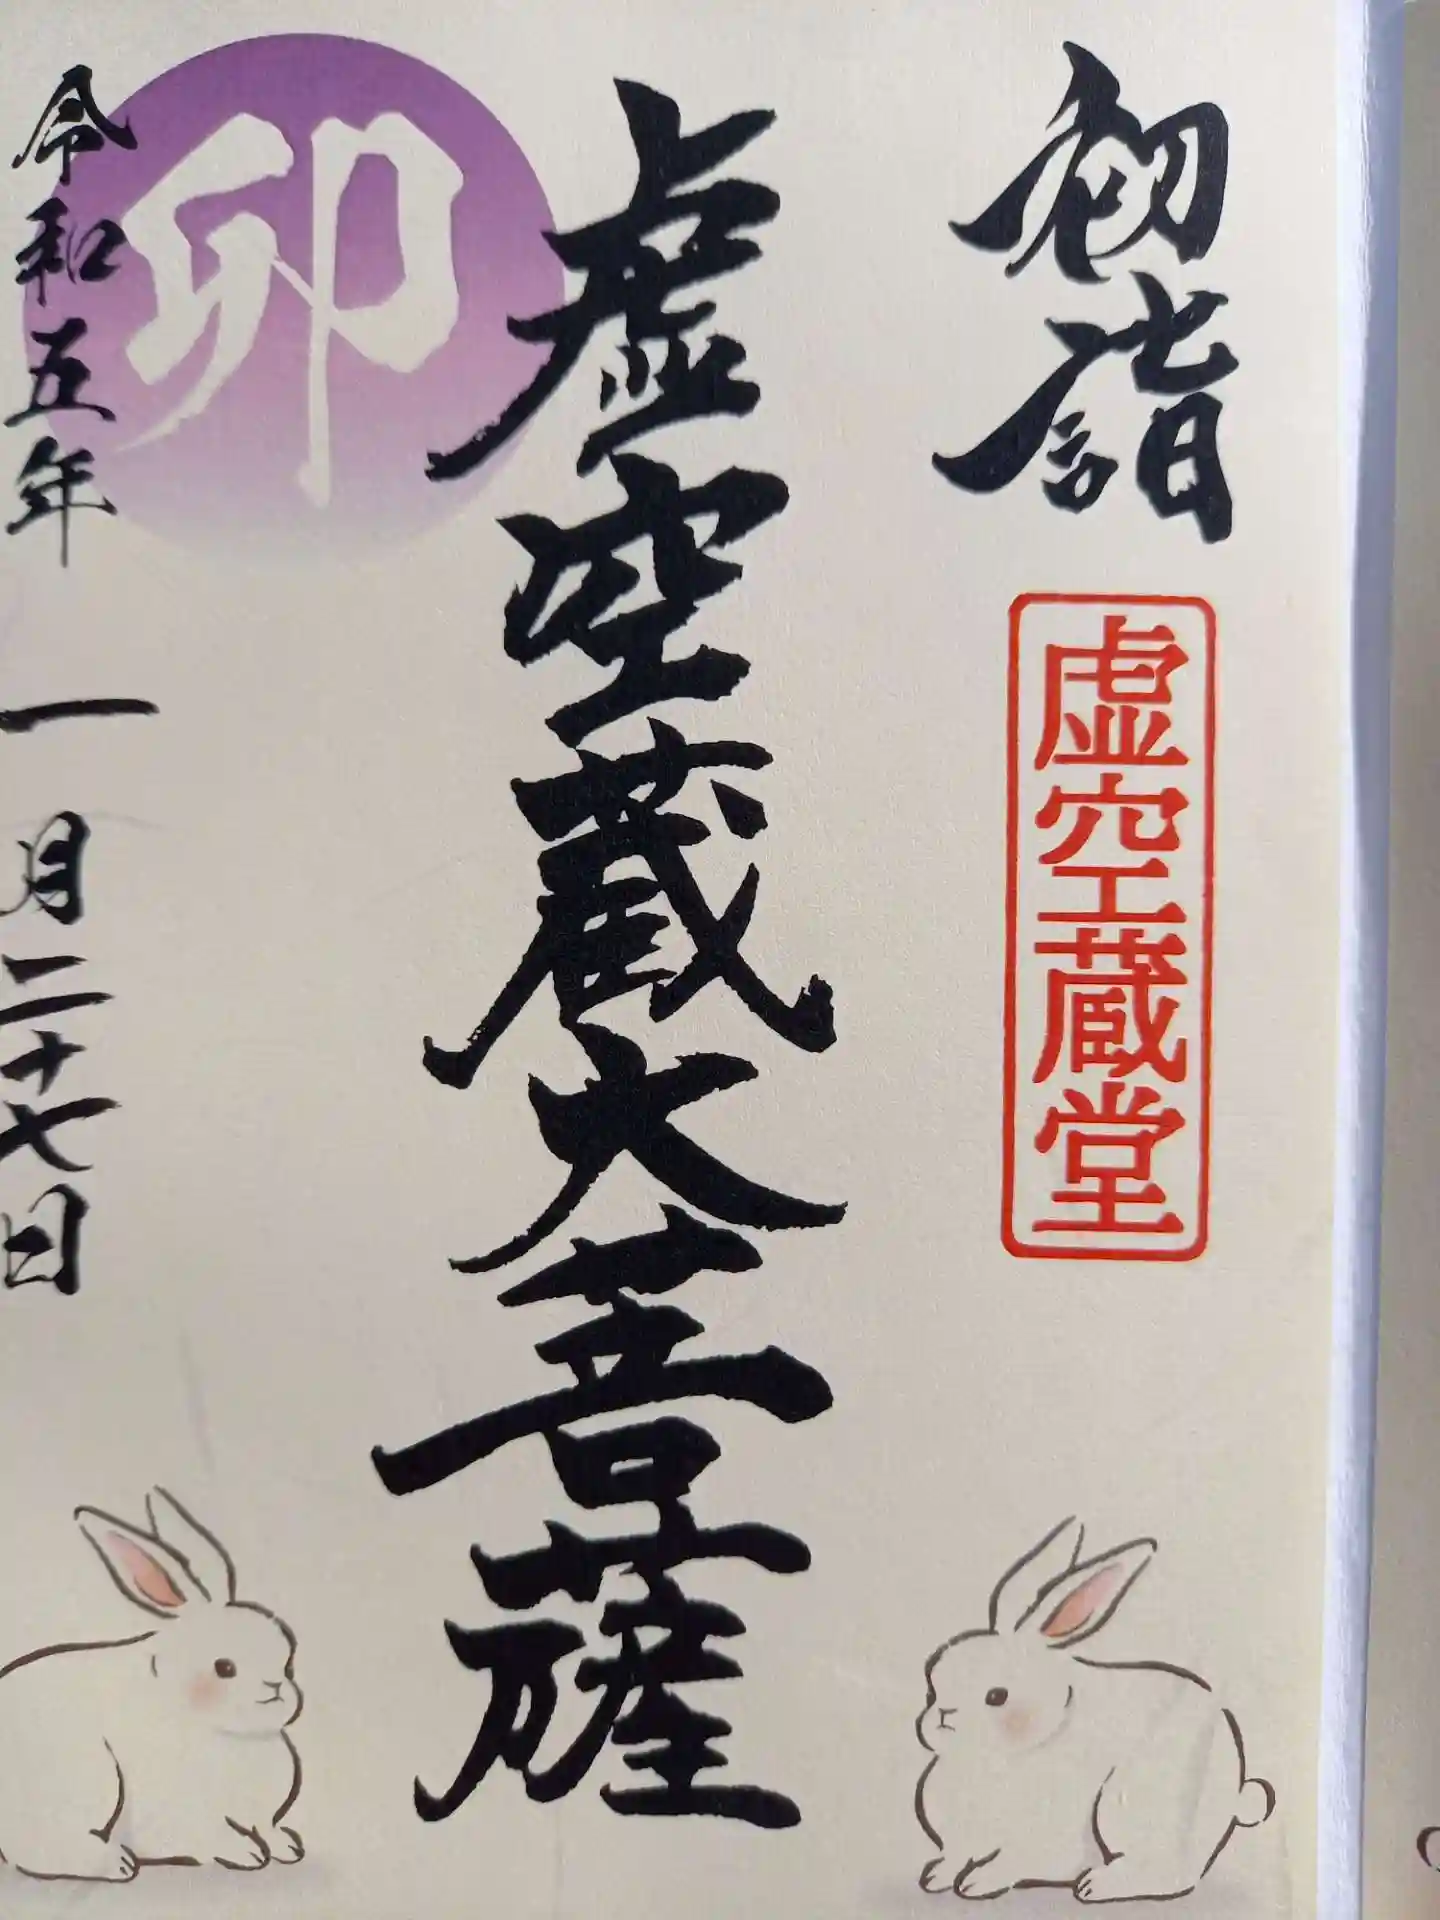 初詣
虚空蔵堂
虚空蔵大菩薩
卯
令和五年一月二十七日